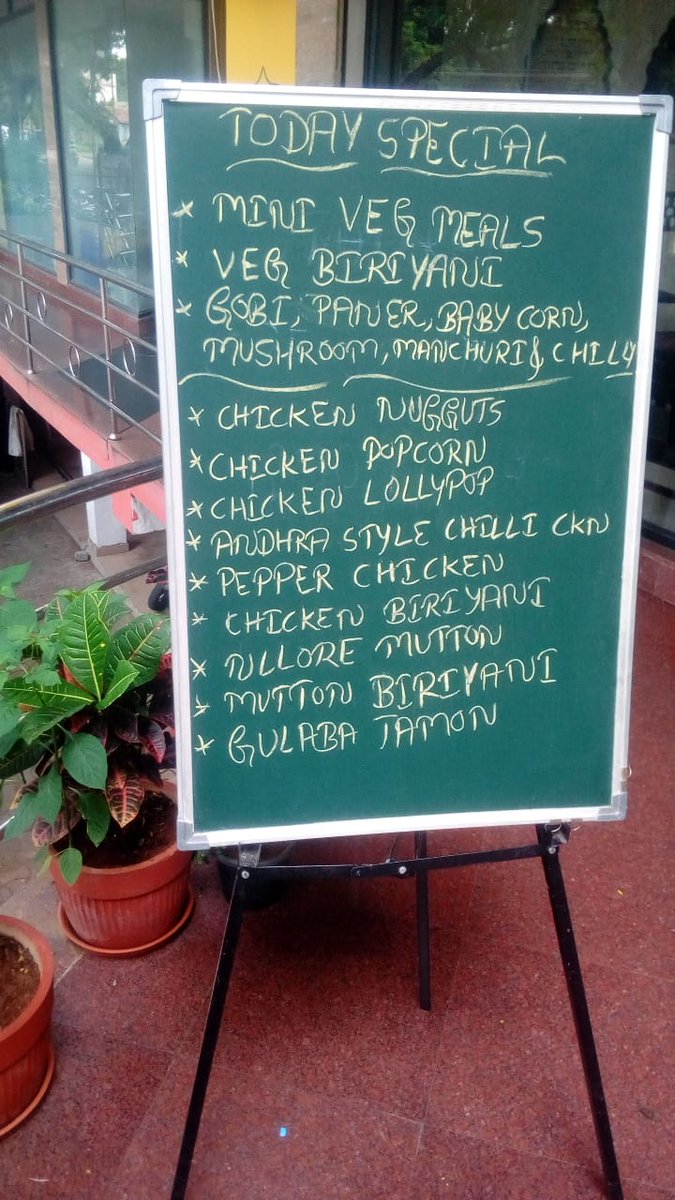 TODAY SPECIAL
* MINI VEG MEALS
* VEG BIRIYANI
* GOBI, PANER, BABY CORN,
MUSHROOM, MANCHURI & CHILLY
* CHICKEN NUGGUTS
* CHICKEN POPCORN
* CHICKEN LOLLYPOP
* ANDHRA STYLE CHILLI CKN
* PEPPER CHICKEN
* CHICKEN BIRIYANI
* NLLORE MUTTON
* MUTTON BIRIYANI
* GULABA JAMON